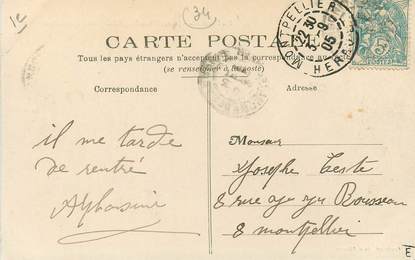 1e
34
CARTE POSTALE
Tous les pays étrangers n'acceptent pas la correspondance au
(se renseigner à la poste)
Correspondance
Adresse
MONTPELLIER
22 30
5-9
05
HER
5
POSTES
il me tarde
de rentré
Monsieur
Josephe Teste
8 rue
Rousseau
8 montpellier
E